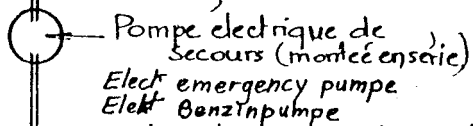 Pompe électrique de
secours (montée en série)
Elect emergency pumpe
Elekt Benzinpumpe